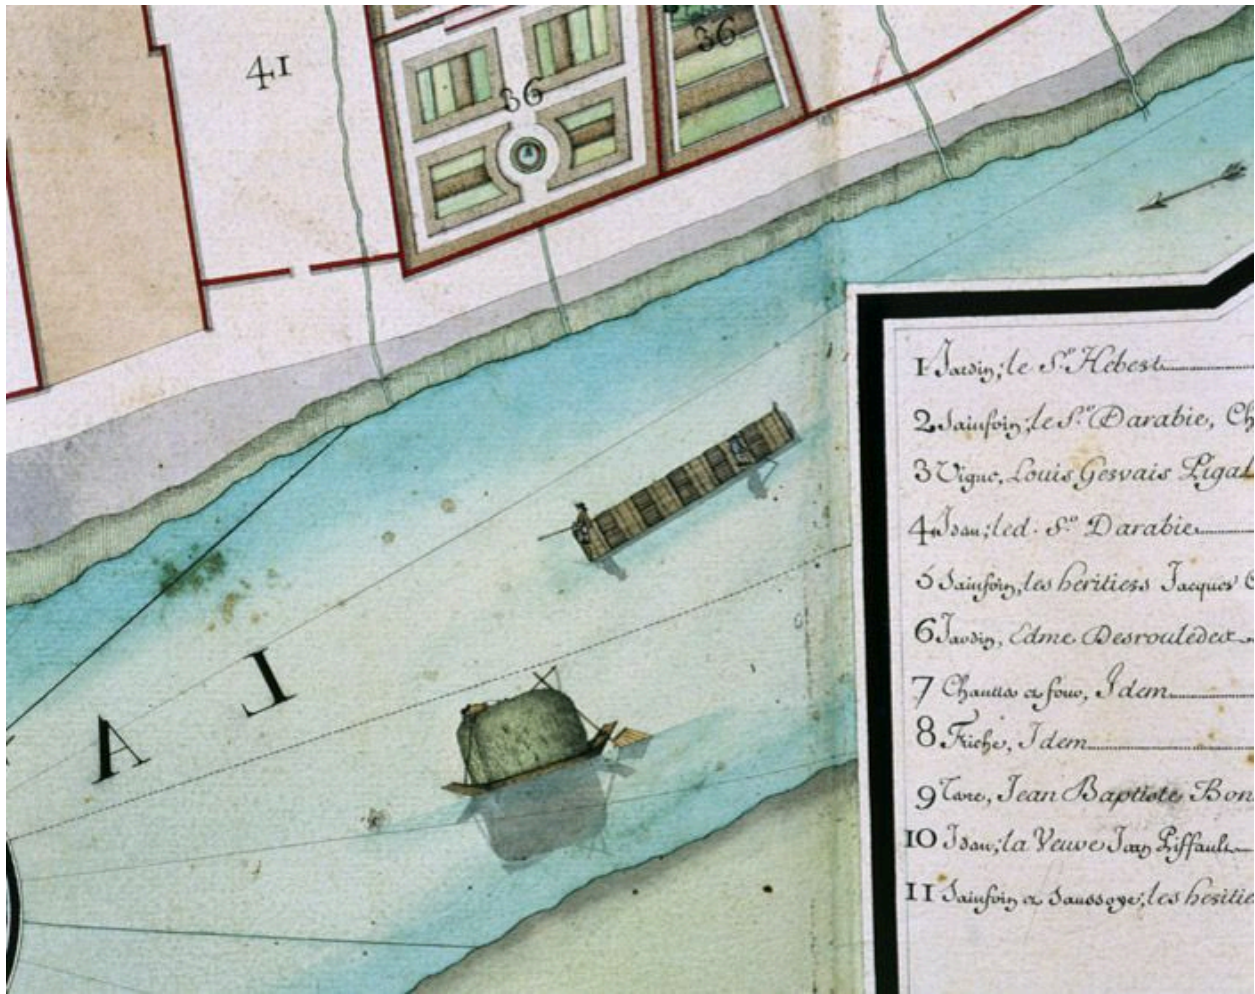 41
36
36
I
A
1 Jardin; le S.r Hebert
2 Sainfoin; le S.r Darabie, Ch
3 Vigne, Louis Gervais Pigal
4 Idem; led. S.r Darabie
5 Sainfoin, les heritiers Jacques
6 Jardin, Edme Desrouledet
7 Idem
8 Friche, Idem
9 Jean Baptiste Bon
10 Idem; la Veuve Piffault
11 Sainfoin & Saussoye; les heritie